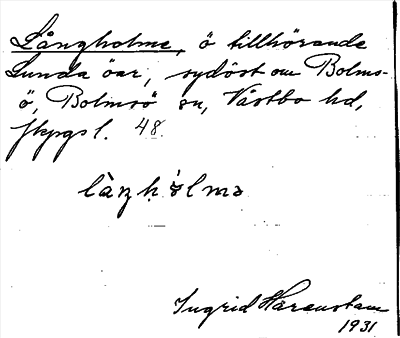 Långholme, ö tillhörande
Lunda öar, sydöst om Bolms-
ö, Bolmsö sn, Västbo hd,
Jkpgs l. 48.
Ingrid Harenstam
1931